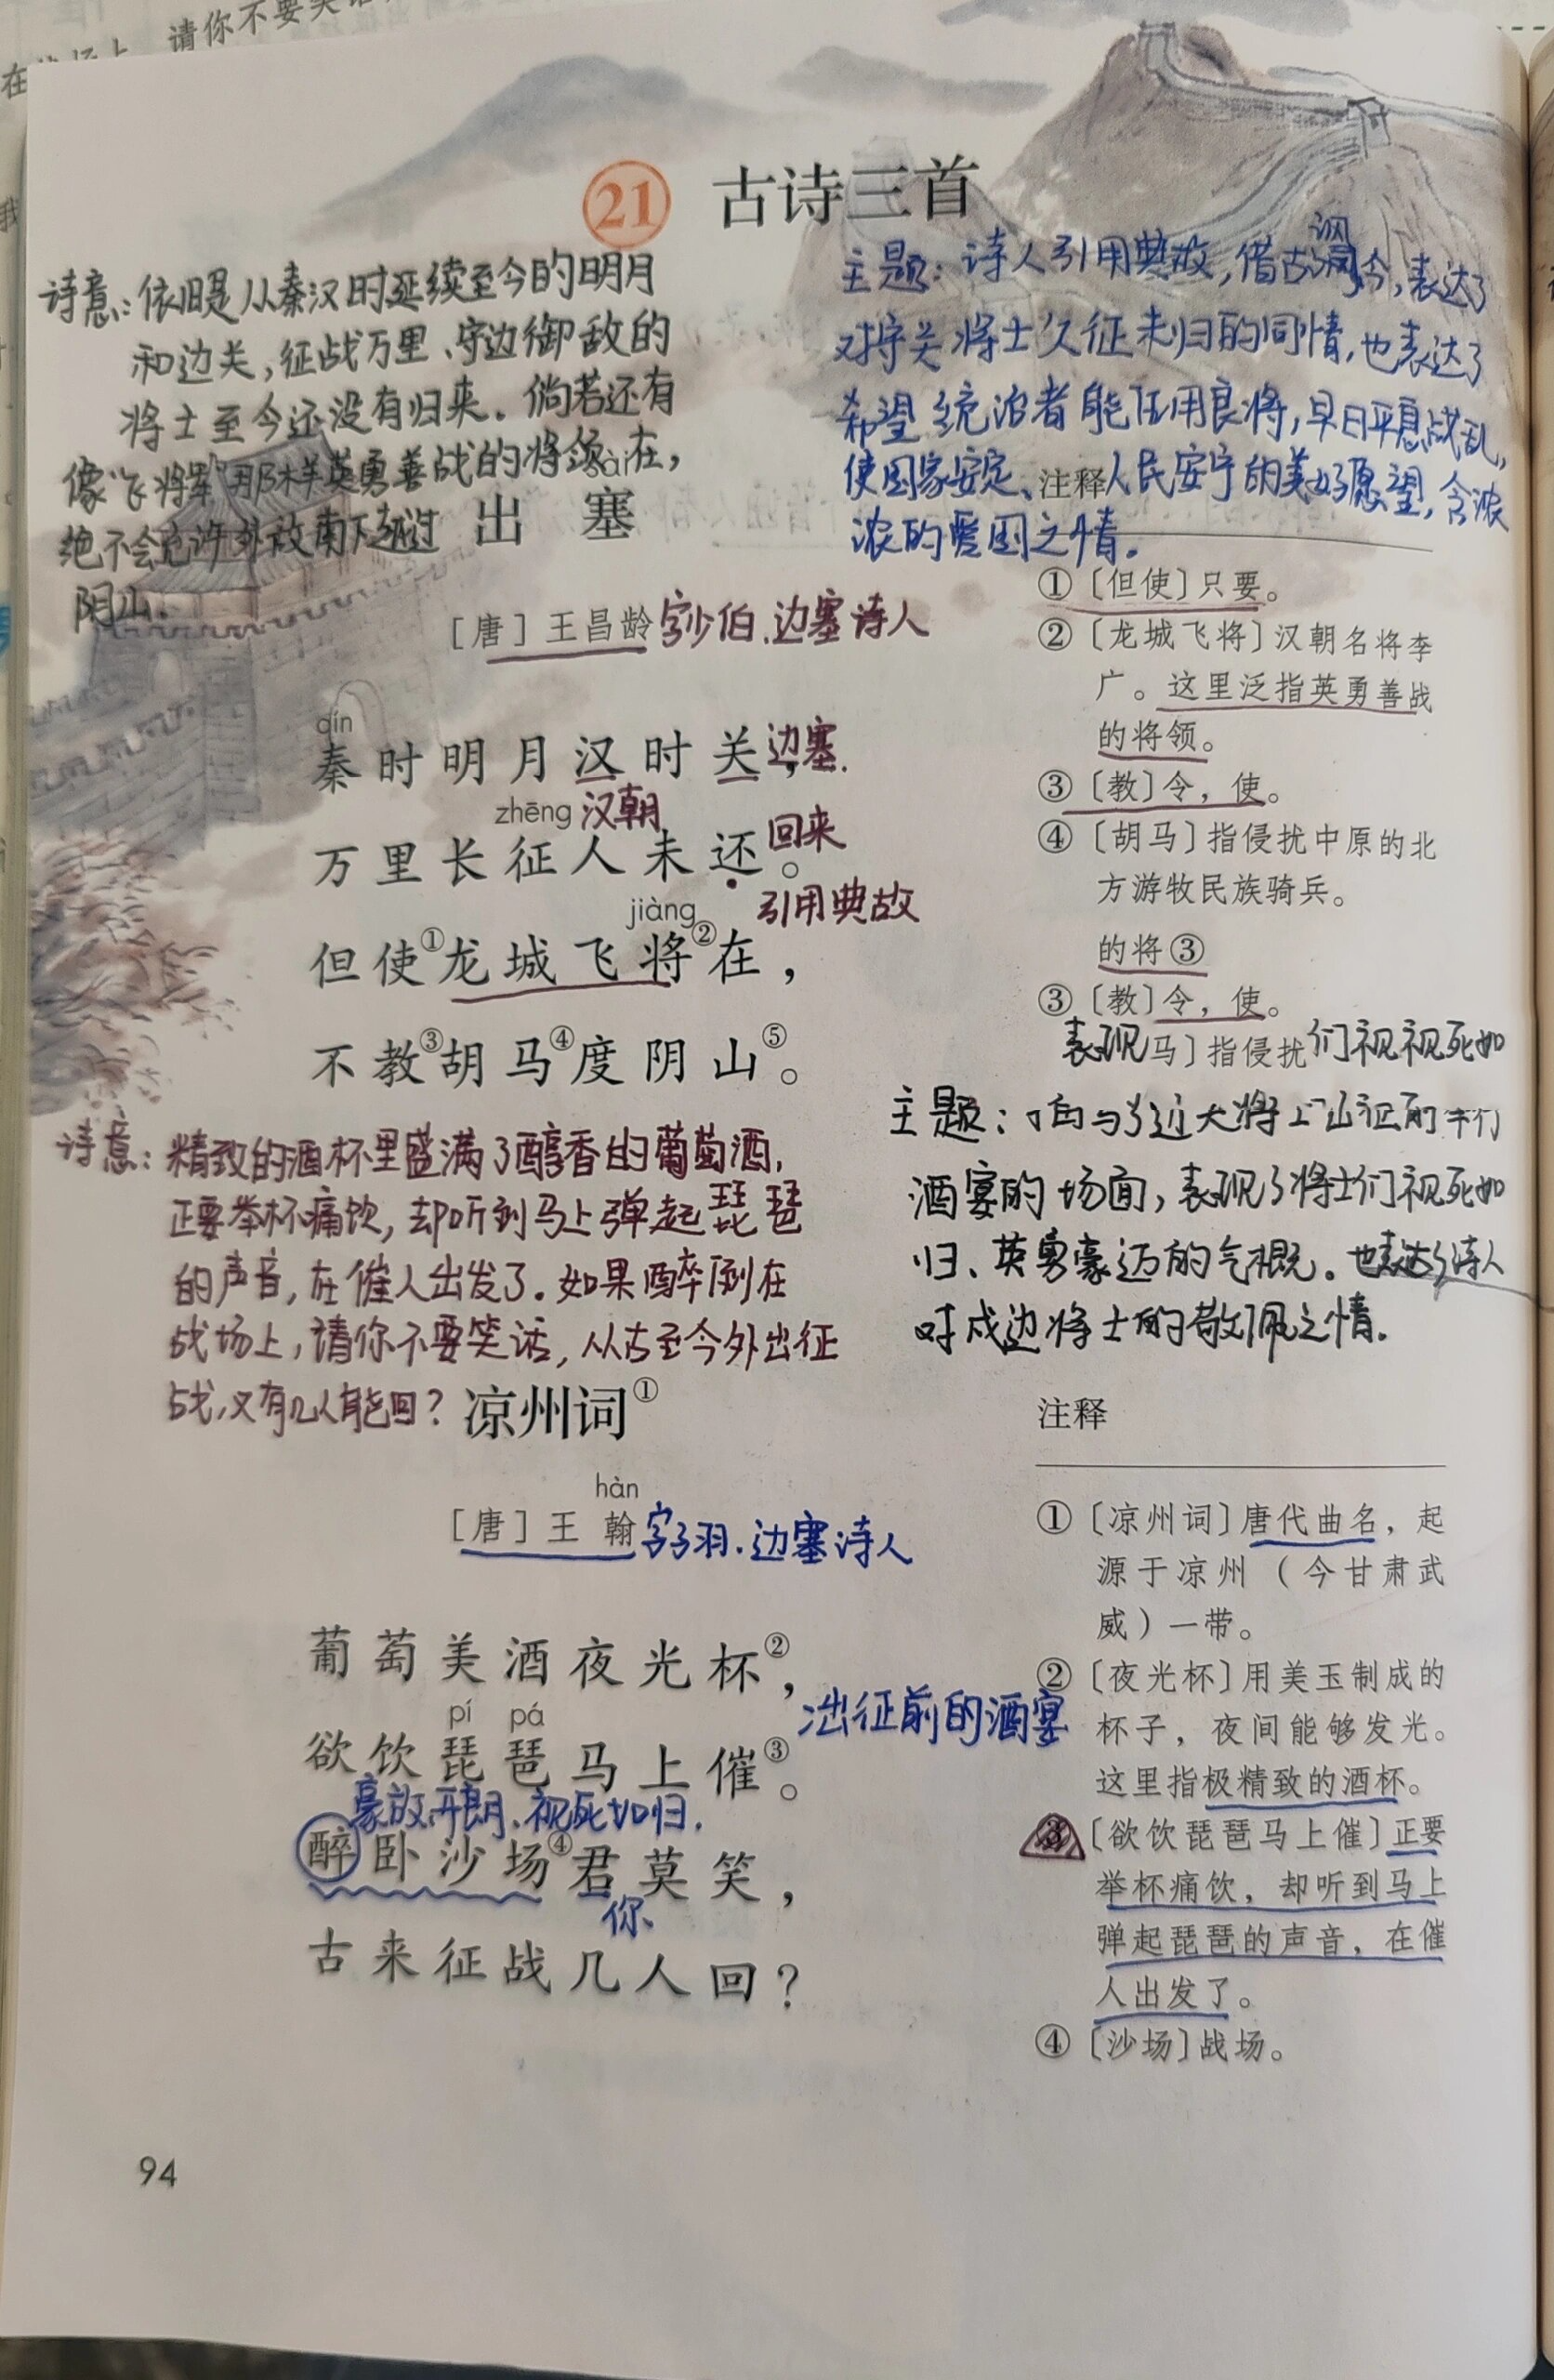 请你不要笑话
21 古诗三首
诗意：依旧是从秦汉时延续至今的明月
和边关，征战万里、守边御敌的
将士至今还没有归来。倘若还有
像“飞将军”那样英勇善战的将领在，
绝不会允许外敌南下越过
阴山.
主题：诗人引用典故，借古讽今，表达了
对守关将士久征未归的同情，也表达了
希望统治者能任用良将，早日平息战乱，
使国家安定、人民安宁的美好愿望，含浓
浓的爱国之情。
sài
出塞
[唐] 王昌龄 字少伯.边塞诗人
qín
秦时明月汉时关， 边塞.
zhēng 汉朝
万里长征人未还。 回来
jiàng 引用典故
但使①龙城飞将②在，
不教③胡马④度阴山⑤。
注释
①〔但使〕只要。
②〔龙城飞将〕汉朝名将李
广。这里泛指英勇善战
的将领。
③〔教〕令，使。
④〔胡马〕指侵扰中原的北
方游牧民族骑兵。
的将③
③〔教〕令，使。
表现 马〕指侵扰 们视视死如
诗意：精致的酒杯里盛满了醇香的葡萄酒，
正要举杯痛饮，却听到马上弹起琵琶
的声音，在催人出发了。如果醉倒在
战场上，请你不要笑话，从古至今外出征
战，又有几人能回？
主题：
酒宴的场面，表现了将士们视死如
归、英勇豪迈的气概。也表达了诗人
对戍边将士的敬佩之情.
凉州词①
hàn
[唐] 王翰 字子羽.边塞诗人
葡萄美酒夜光杯②，
出征前的酒宴
pí pá
欲饮琵琶马上催③。
豪放开朗、视死如归.
醉卧沙场④君莫笑，
你
古来征战几人回？
注释
①〔凉州词〕唐代曲名，起
源于凉州（今甘肃武
威）一带。
②〔夜光杯〕用美玉制成的
杯子，夜间能够发光。
这里指极精致的酒杯。
③〔欲饮琵琶马上催〕正要
举杯痛饮，却听到马上
弹起琵琶的声音，在催
人出发了。
④〔沙场〕战场。
94